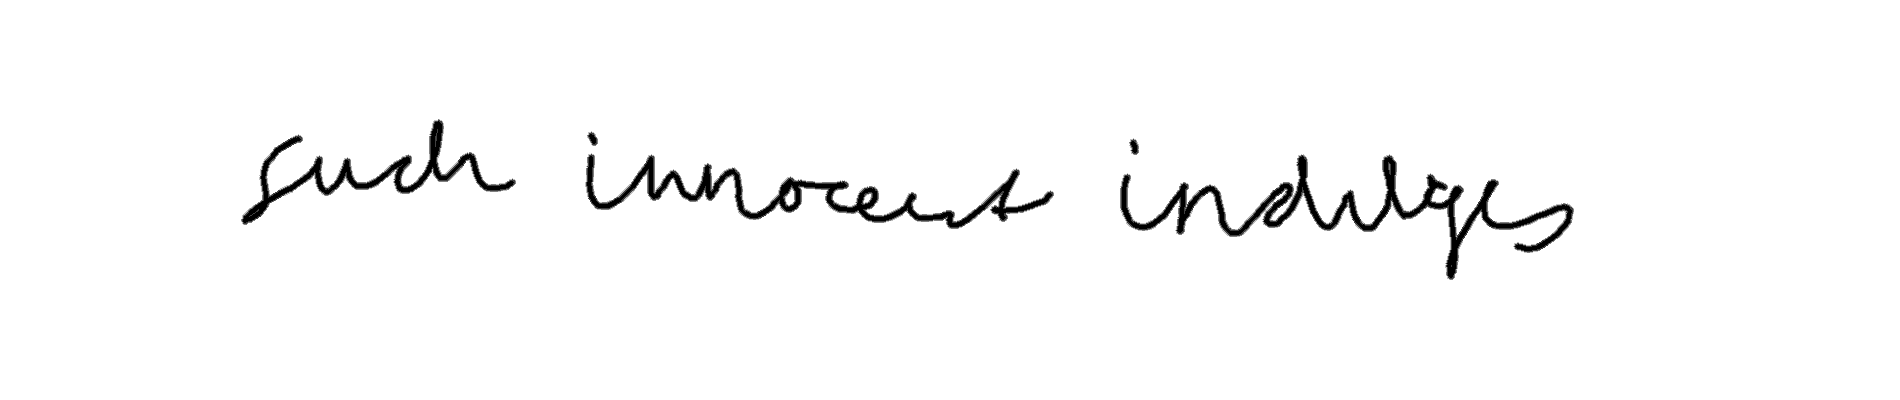 such innocent indulges